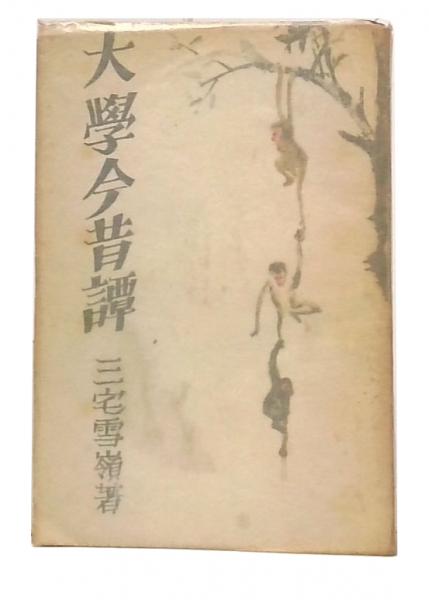 大學今昔譚
三宅雪嶺著